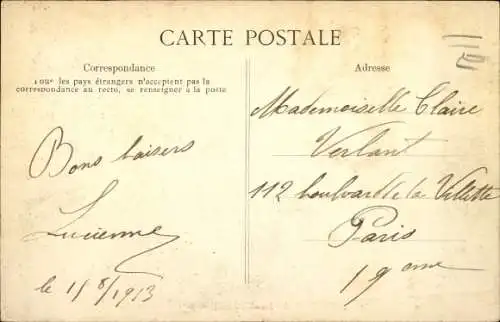 CARTE POSTALE
Correspondance
Tous les pays étrangers n'acceptent pas la
correspondance au recto, se renseigner à la poste
Bons baisers
Lucienne
le 11/8/1913
Adresse
Mademoiselle Claire
Verlant
112 boulvard de la Villette
Paris
19eme